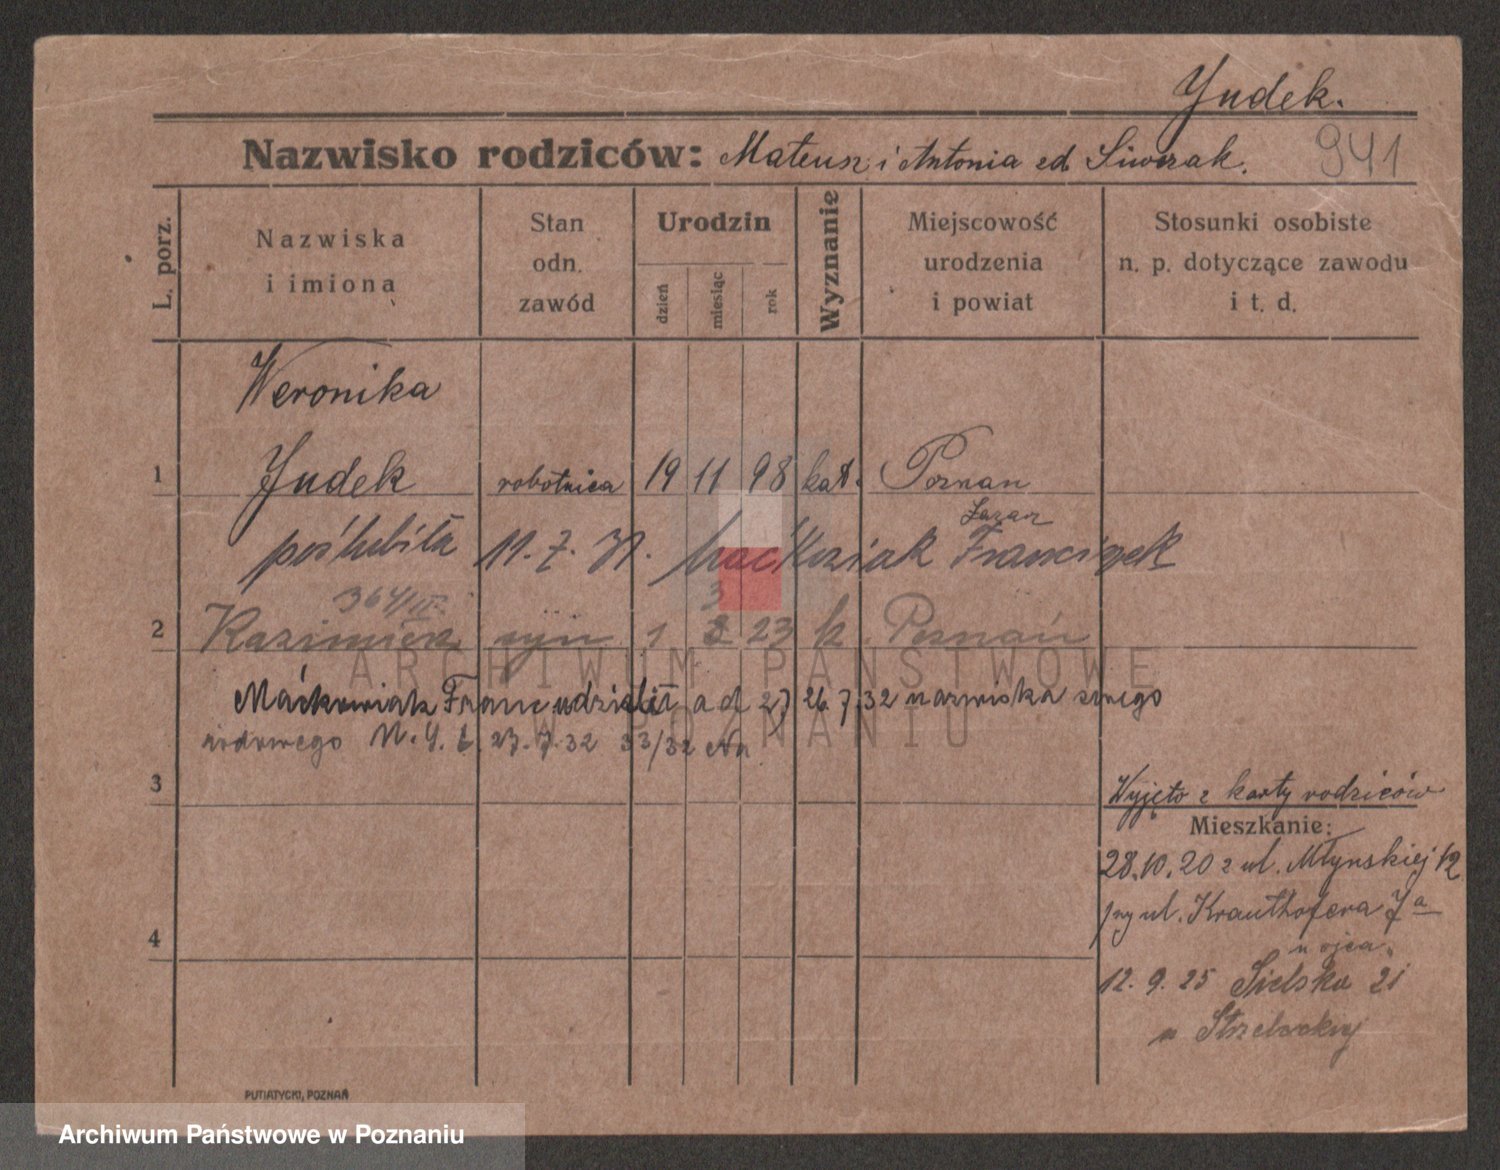 Yudek.
Nazwisko rodziców: Mateusz i Antonia zd. Siwczak. 941
L. porz.
Nazwiska i imiona
Stan odn. zawód
Urodzin
dzień miesiąc rok
Wyznanie
Miejscowość urodzenia i powiat
Stosunki osobiste n. p. dotyczące zawodu i t. d.
Weronika
1 Yudek robotnica 19 11 98 kat. Poznan
Łazarz
poślubiła 11. 7. 31. Franciszek
3
2 Kazimierz syn 1 2 23 k. Poznań
ARCHIWUM PAŃSTWOWE
Maćkowiak Franc udzielił 26.7.32 nazwiska swego
W POZNANIU
rodowego 27.7.32 33/32
3
Wyjęto z karty rodziców
Mieszkanie:
28.10.20 z ul. Młyńskiej 12
przy ul. Krauthofera 7a
4
u ojca.
12. 9. 25 Sielska 21
u
PUTIATYCKI, POZNAŃ
Archiwum Państwowe w Poznaniu